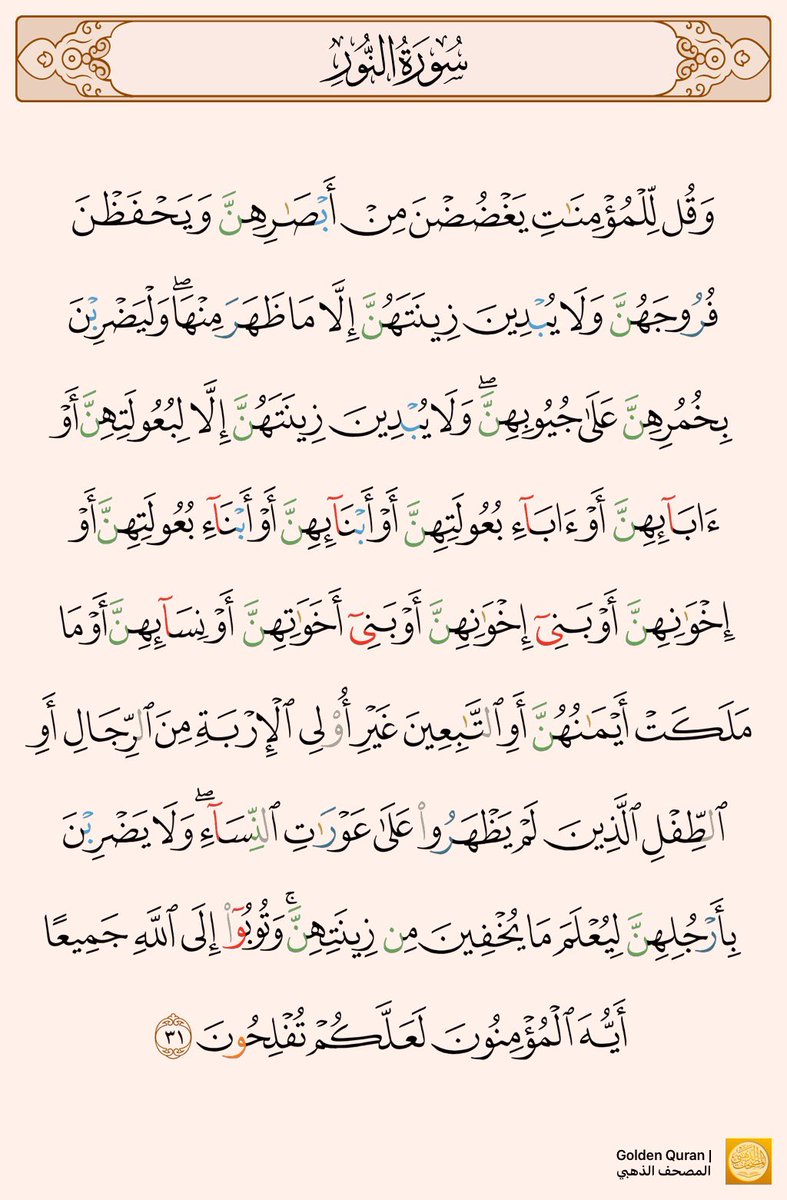 سُورَةُ النُّورِ
وَقُل لِّلْمُؤْمِنَٰتِ يَغْضُضْنَ مِنْ أَبْصَٰرِهِنَّ وَيَحْفَظْنَ
فُرُوجَهُنَّ وَلَا يُبْدِينَ زِينَتَهُنَّ إِلَّا مَا ظَهَرَ مِنْهَا ۖ وَلْيَضْرِبْنَ
بِخُمُرِهِنَّ عَلَىٰ جُيُوبِهِنَّ ۖ وَلَا يُبْدِينَ زِينَتَهُنَّ إِلَّا لِبُعُولَتِهِنَّ أَوْ
ءَابَآئِهِنَّ أَوْ ءَابَآءِ بُعُولَتِهِنَّ أَوْ أَبْنَآئِهِنَّ أَوْ أَبْنَآءِ بُعُولَتِهِنَّ أَوْ
إِخْوَٰنِهِنَّ أَوْ بَنِىٓ إِخْوَٰنِهِنَّ أَوْ بَنِىٓ أَخَوَٰتِهِنَّ أَوْ نِسَآئِهِنَّ أَوْ مَا
مَلَكَتْ أَيْمَٰنُهُنَّ أَوِ ٱلتَّٰبِعِينَ غَيْرِ أُو۟لِى ٱلْإِرْبَةِ مِنَ ٱلرِّجَالِ أَوِ
ٱلطِّفْلِ ٱلَّذِينَ لَمْ يَظْهَرُوا۟ عَلَىٰ عَوْرَٰتِ ٱلنِّسَآءِ ۖ وَلَا يَضْرِبْنَ
بِأَرْجُلِهِنَّ لِيُعْلَمَ مَا يُخْفِينَ مِن زِينَتِهِنَّ ۚ وَتُوبُوٓا۟ إِلَى ٱللَّهِ جَمِيعًا
أَيُّهَ ٱلْمُؤْمِنُونَ لَعَلَّكُمْ تُفْلِحُونَ ٣١
Golden Quran |
المصحف الذهبي